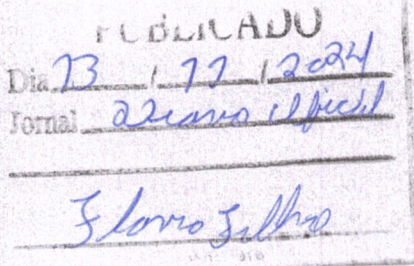 PUBLICADO
Dia 13 / 11 / 2024
Jornal Diario Oficial
Flavio Filho